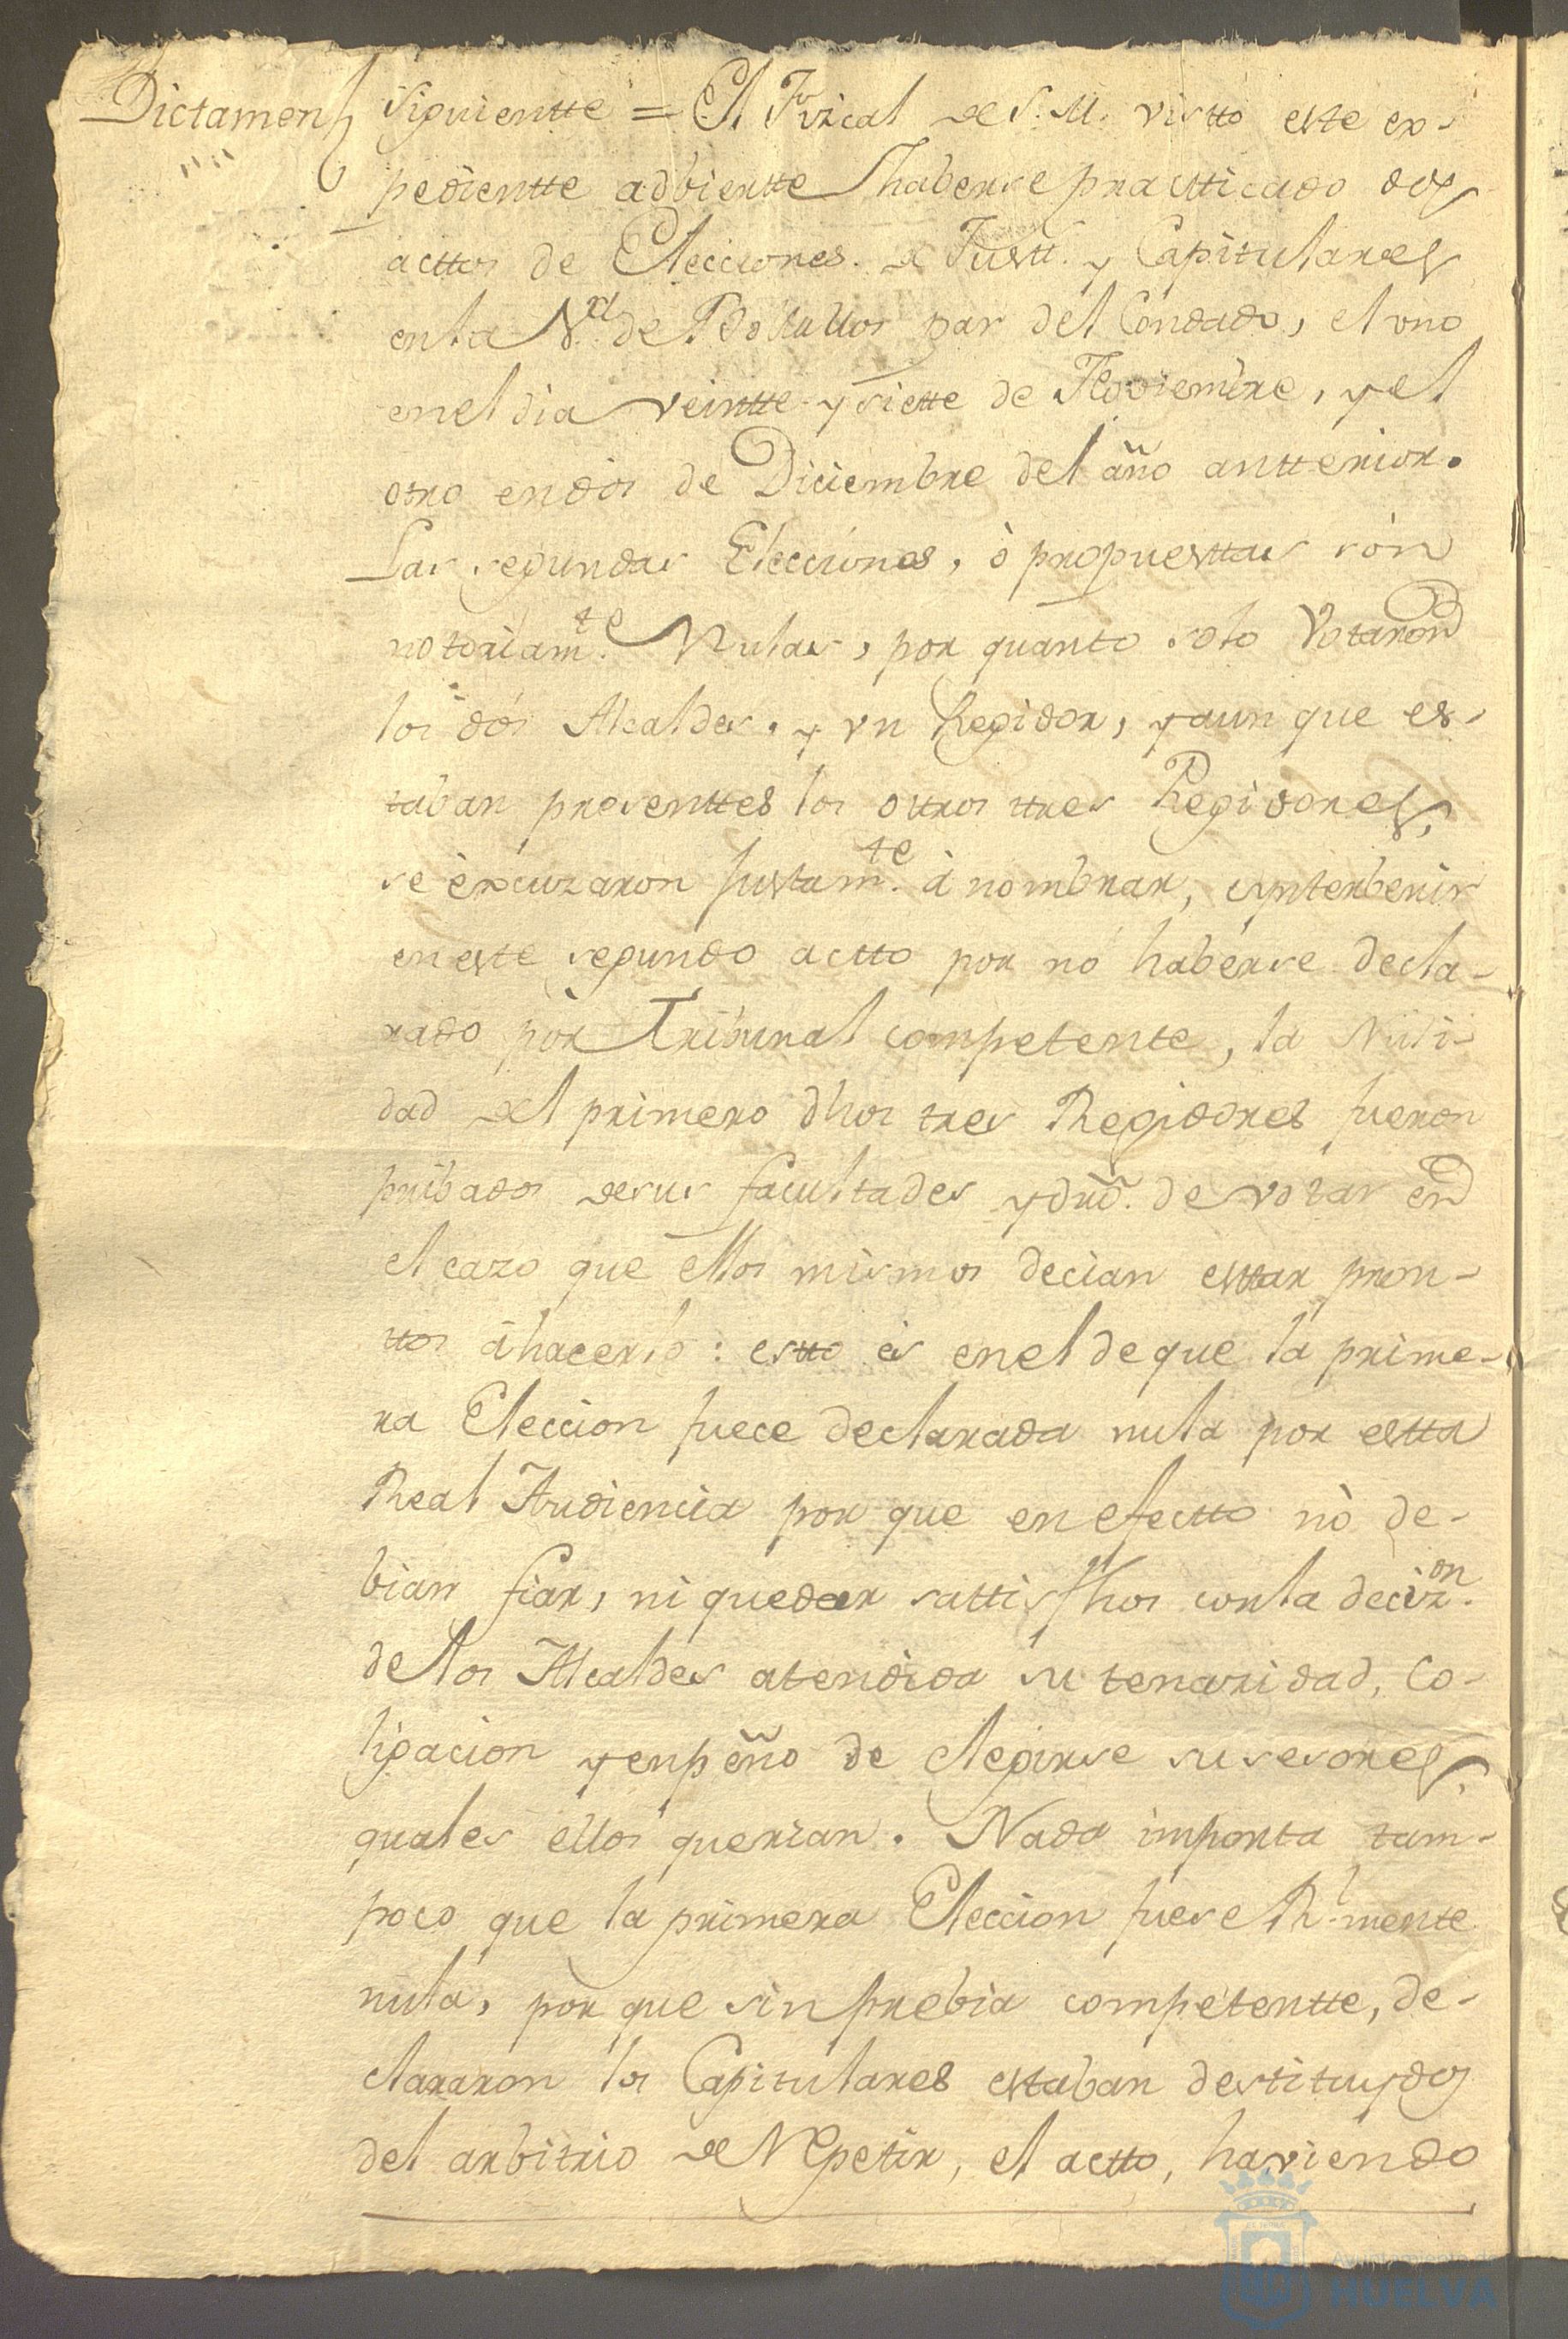 Dictamen
siguientte = El Fizcal de S. M. vistto este ex-
pedientte adbiertte haberse practticado dos
acttos de Elecciones. de Justt. y Capitulares
en la V.ª de Bollullos par del Condado, el uno
en el dia veintte y siette de Noviembre, y el
otro en dos de Diciembre del año antterior.
Las segundas Elecciones, ò propuesttas són
notoriam.te Nulas, por quanto solo Votaron
los dos Alcaldes. y un Regidor, y aun que es-
taban presenttes los ottros ttres Regidores,
se èxcuzaron Justam.te à nombrar, e ynterbenir
en este segundo actto por nó haberse decla-
rado pòr Tribunal competente, la Nuli-
dad del primero dhos tres Regidores fueron
pribados de sus facultades y dro. de votar en
el cazo que ellos mismos decian esttar pron-
ttos à hacerlo: estto ès en el de que la prime-
ra Eleccion fuece declarada nula por estta
Real Audiencia por que en efectto nò de-
bian fiar, ni quedar sattisfhos con la deciz.on
de los Alcaldes atendida su temaridad, Co-
ligacion y enpeño de elegirse susesores,
quales ellos querian. Nada importa tam-
poco que la primera Eleccion fuese R.lmente
nula, por que sin prebia competentte, de-
clararon los Capitulares estaban destituydos
del arbitrio de Repetir, el actto, haviendo
Ayuntamiento de
HUELVA